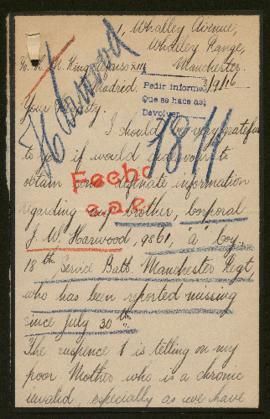 1, Whalley Avenue,
Whalley Range,
Manchester.
H. M. King Alfonso XIII
3/9/16
Madrid.
Pedir informe
Que se hace así
Devolver
Your Majesty.
Harwood
18/4
I should be very grateful
to you if would endeavour to
obtain some definite information
Fecho
regarding my brother, corporal
J. W. Harwood, 9861, "A" Coy.
18th Service Batt. Manchester Regt,
who has been reported missing
since July 30th.
The suspense is telling on my
poor Mother who is a chronic
invalid, especially as we have